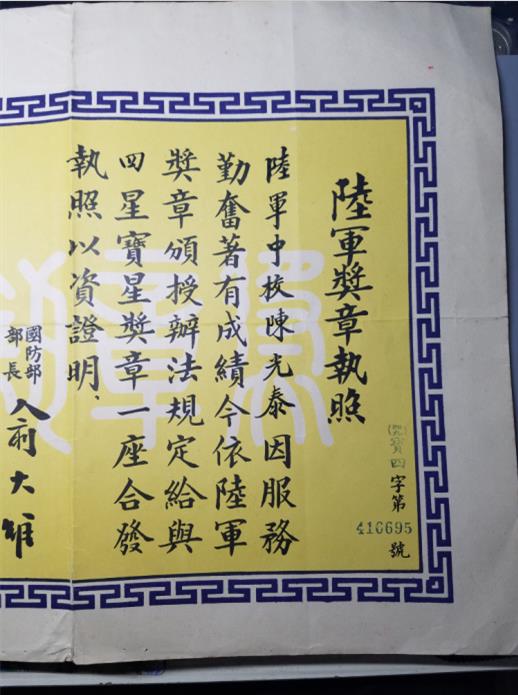 陸軍獎章執照
寶四字第
410695號
陸軍中校陳光泰因服務
勤奮著有成績今依陸軍
獎章頒授辦法規定給與
四星寶星獎章一座合發
執照以資證明、
國防部
部長
俞大維